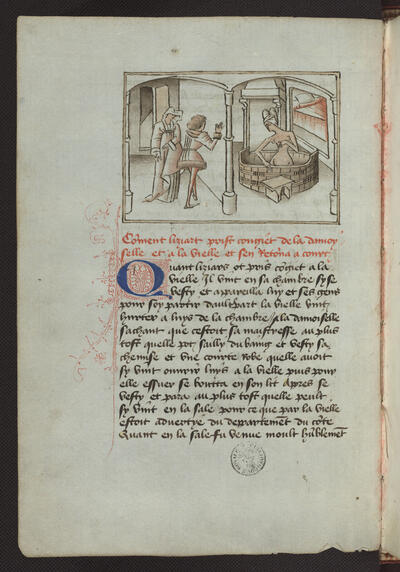 Coment liziart prist congiet de la damoy
selle et a la vielle et sen retorna a court
Quant liziars ot pris cogiet a la
vielle Il vint en sa chambre sy se
vesty et apareilla luy et ses gens
pour soy partir daultre part la vielle vint
hurter a luys de la chambre / a la damoiselle
sachant que cestoit sa maistresse au plus
tost quelle pot sailly du baing et vesty sa
chemise et vne courte robe quelle auoit
sy vint ouurir luys a la vielle puis pour
elle essuer se bouta en son lit Apres se
vesty et para au plus tost quelle peult
sy vint en la sale pour ce que par la vielle
estoit aduertye du departement du cote
Quant en la sale fu venue moult hublement